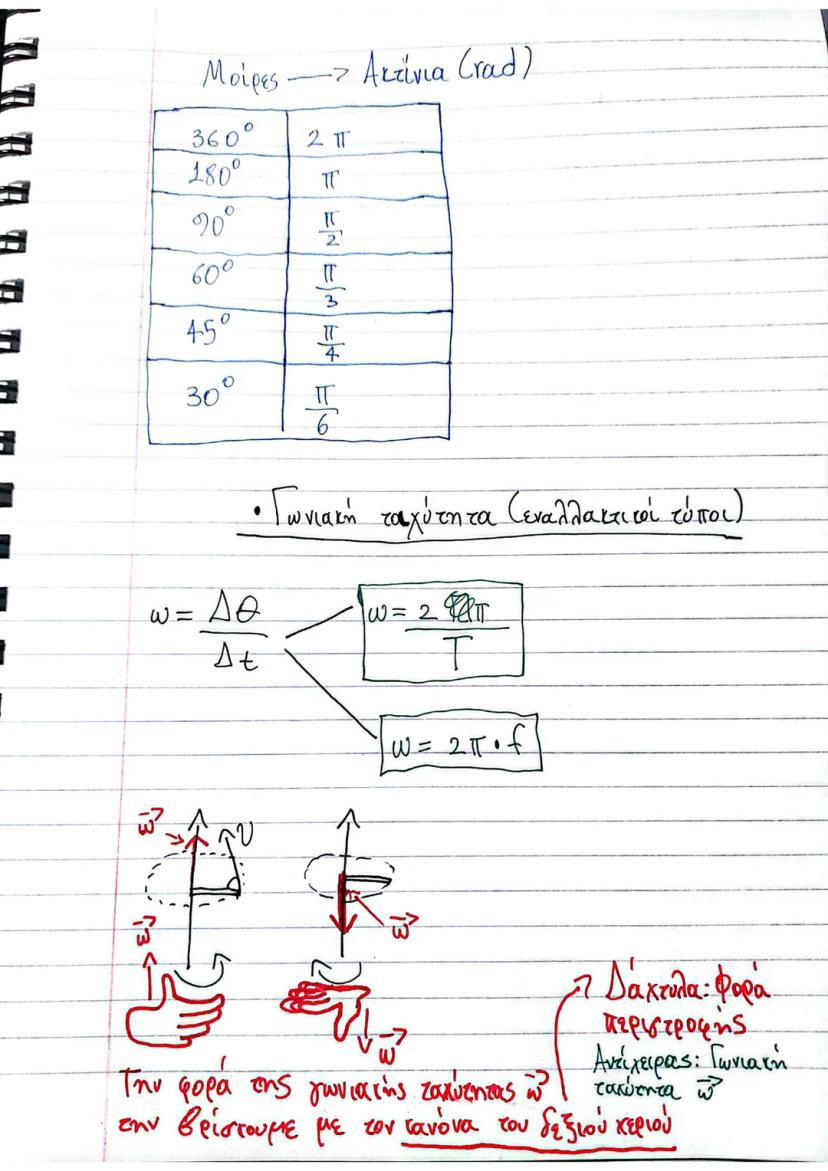 Μοίρες → Ακτίνια (rad)
360° 2π
180° π
90° π/2
60° π/3
45° π/4
30° π/6
• Γωνιακή ταχύτητα (εναλλακτικοί τύποι)
ω = Δθ/Δt
ω = 2π/T
ω = 2π · f
ω⃗
υ
ω⃗
ω⃗
ω⃗
Δάκτυλα: Φορά
περιστροφής
Αντίχειρας: Γωνιακή
ταχύτητα ω⃗
Την φορά της γωνιακής ταχύτητας ω⃗
την βρίσκουμε με τον κανόνα του δεξιού χεριού